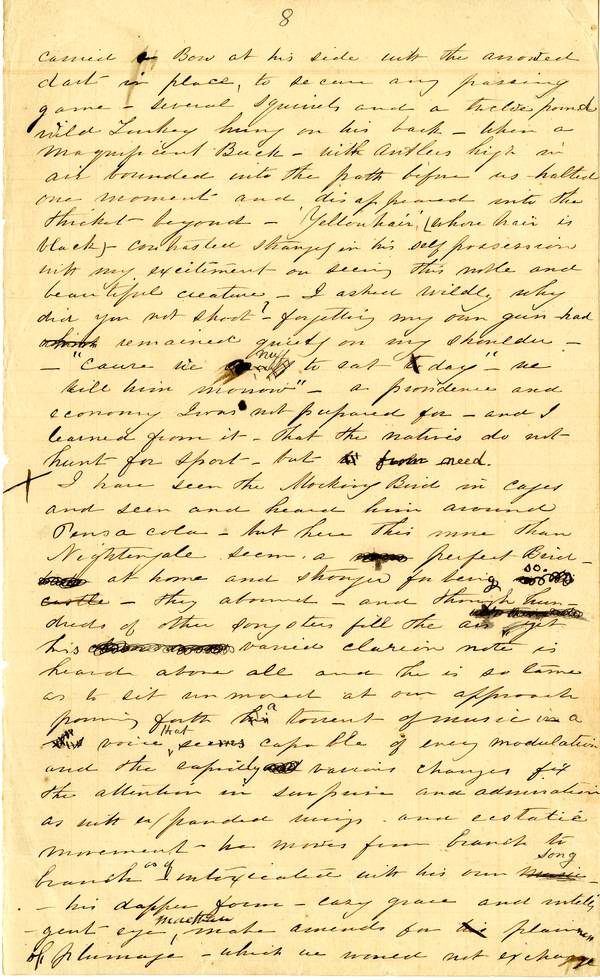 8
carried a Bow at his side with the arrowed
dart in place, to secure any passing
game - several squirrels and a twelve pound
wild Turkey hung on his back - When a
magnificent Buck - with antlers high in
air bounded into the path before us - halted
one moment and disappeared into the
thicket beyond - 'Yellowhair' (whose hair is
black) - contrasted strangely in his self possession
with my excitement on seeing this noble and
beautiful creature - I asked wildly why
did you not shoot? - forgetting my own gun had
remained quietly on my shoulder -
- "cause we nuff to eat to day" - we
kill him morrow" - a providence and
economy I was not prepared for - and I
learned from it - that the natives do not
hunt for sport - but from need.
X I have seen the Mocking Bird in cages
and seen and heard him around
Pensacola - but here this more than
Nightingale seems a perfect Bird -
at home and stronger for being so
- they abound - and though hun
dreds of other songsters fill the air yet
his varied clarion note is
heard above all and he is so tame
as to sit unmoved at our approach
pouring forth a torrent of music in a
voice that seems capable of every modulation
and the rapidly various changes fix
the attention in surprise and admiration
as with expanded wings and ecstatic
movement - he moves from branch to
branch as if intoxicated with his own song
- his dapper form - easy grace and intelli
gent eye, make amends for plainness
of plumage - which we would not exchange